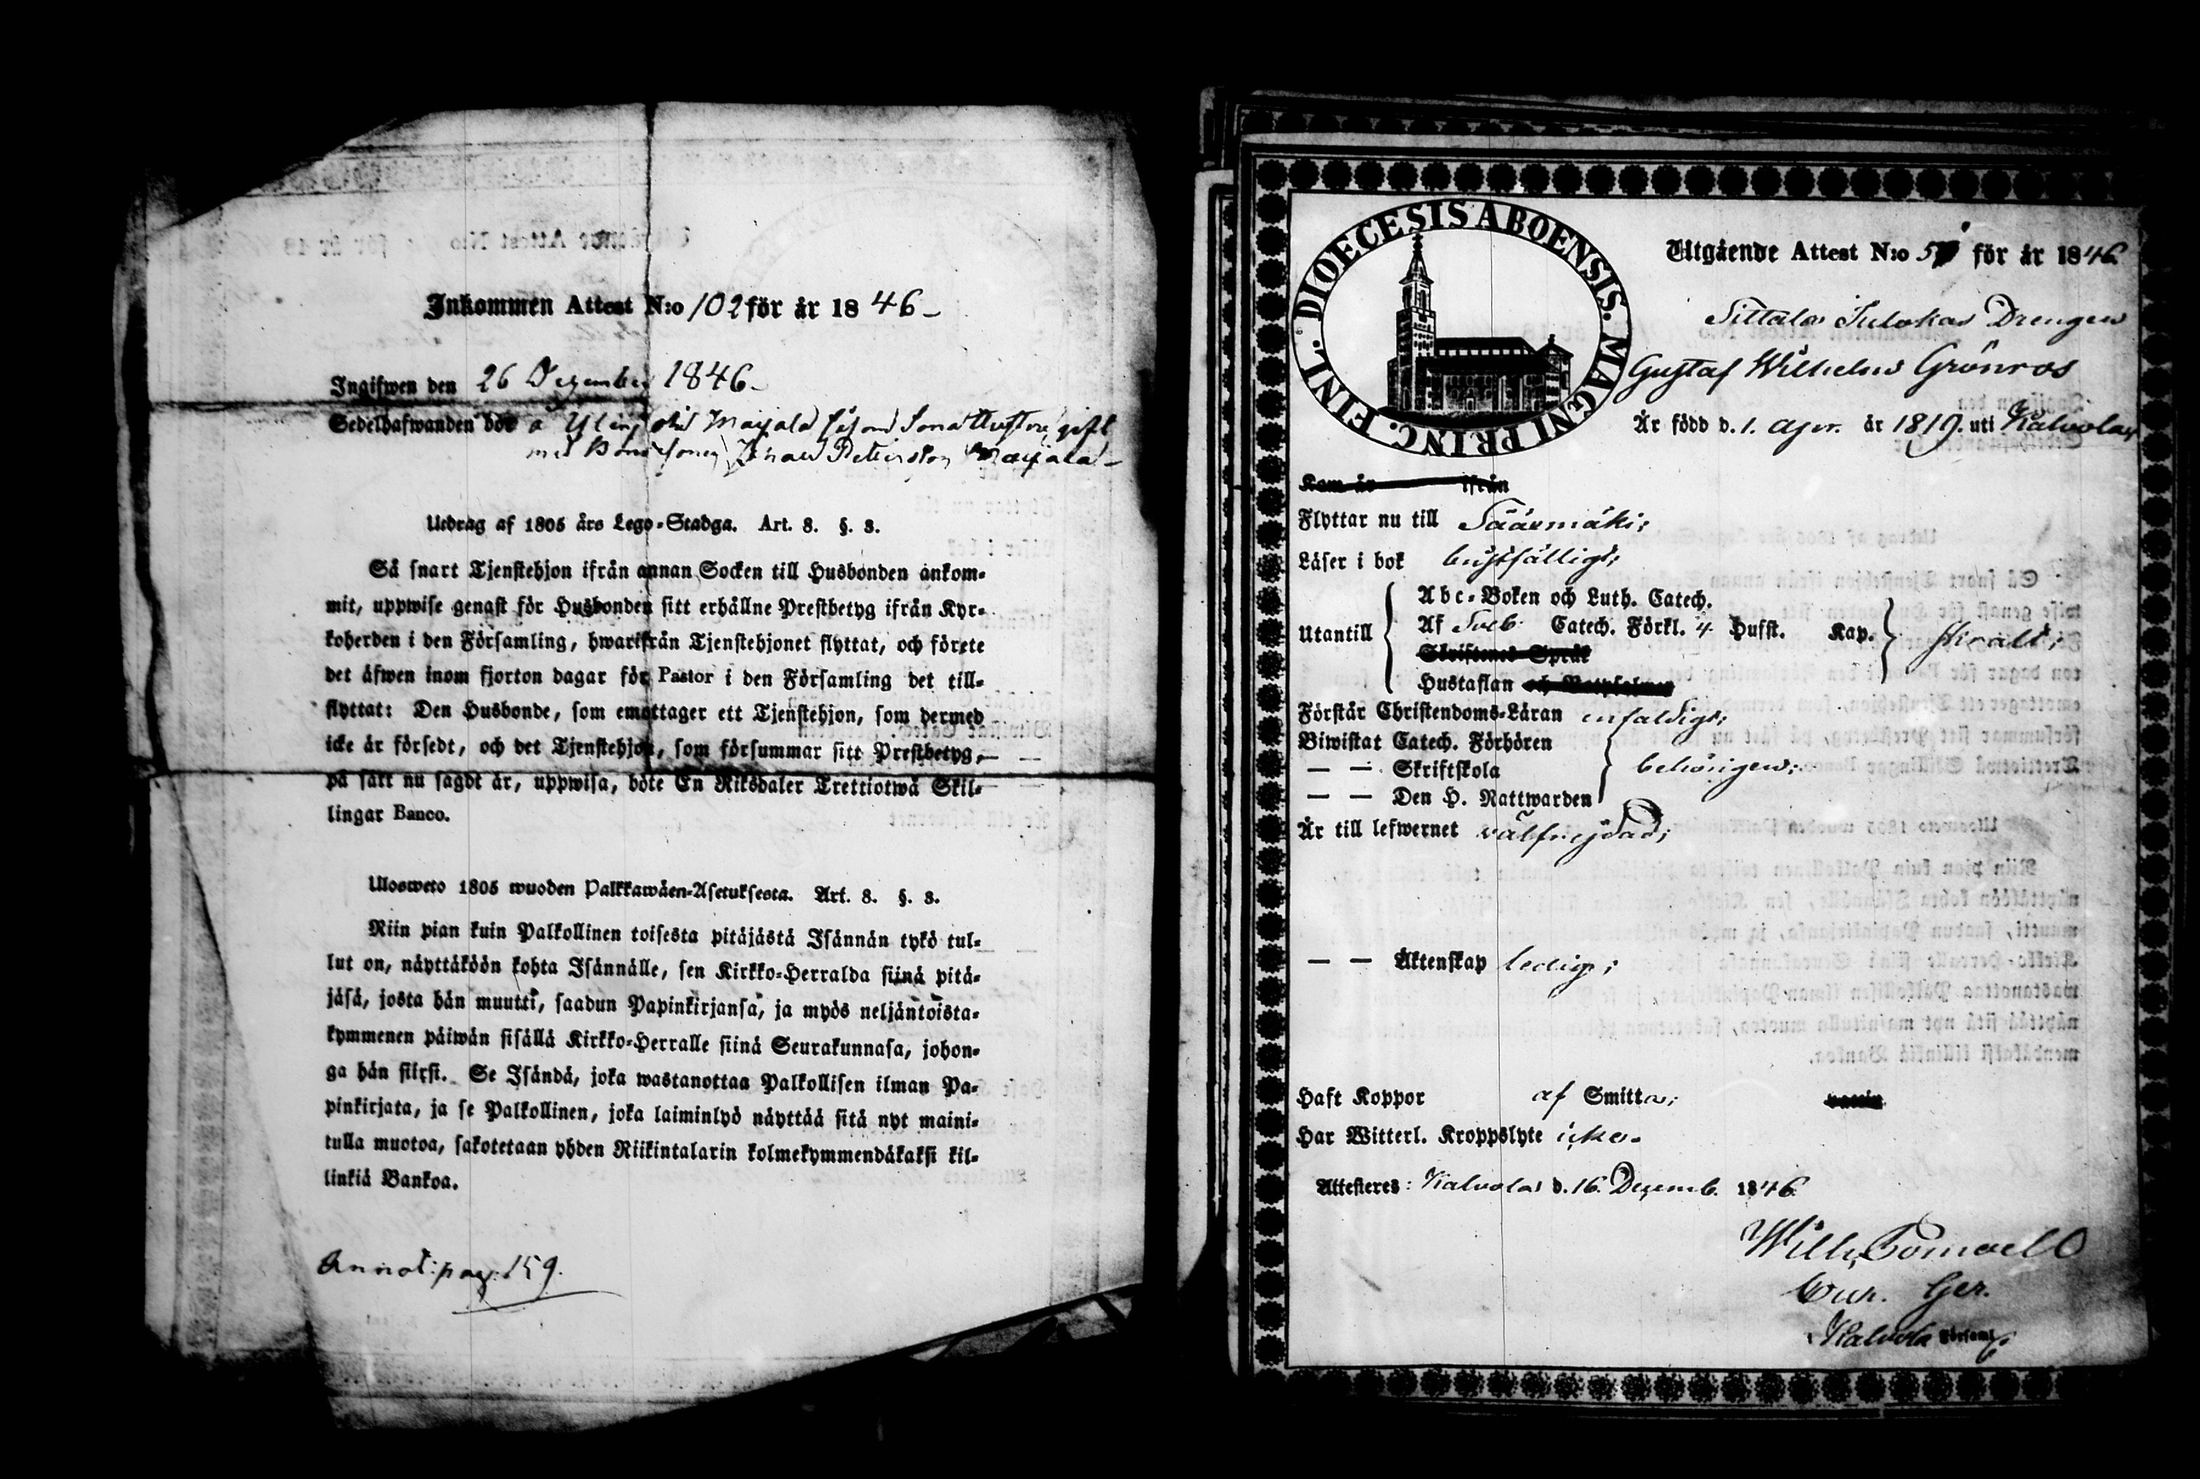 Inkommen Attest N:o 102 för år 1846
Ingifwen den 26 Dezember 1846
Sedelhafwanden bör
Johan Petersson Maijala
Utdrag af 1805 års Lego-Stadga. Art. 8. §. 3.
Så snart Tjenstehjon ifrån annan Socken till Husbonden ankom-
mit, uppwise genast för Husbonden sitt erhållne Prestbetyg ifrån Kyr-
koherden i den Församling, hwarifrån Tjenstehjonet flyttat, och förete
det äfwen inom fjorton dagar för Pastor i den Församling det till-
flyttat: Den Husbonde, som emottager ett Tjenstehjon, som dermed
icke är försedt, och det Tjenstehjon, som försummar sitt Prestbetyg,
på sätt nu sagdt är, uppwisa, böte En Riksdaler Trettiotwå Skil-
lingar Banco.
Ulosweto 1805 wuoden Palkkawäen-Asetuksesta. Art. 8. §. 3.
Niin pian kuin Palkollinen toisesta pitäjästä Isännän tykö tul-
lut on, näyttäköön kohta Isännälle, sen Kirkko-Herralda siinä pitä-
jäsä, josta hän muutti, saadun Papinkirjansa, ja myös neljäntoista-
kymmenen päiwän sisällä Kirkko-Herralle siinä Seurakunnasa, johon-
ga hän siirsi. Se Isändä, joka wastanottaa Palkollisen ilman Pa-
pinkirjata, ja se Palkollinen, joka laiminlyö näyttää sitä nyt maini-
tulla muotoa, sakotetaan yhden Riikintalarin kolmekymmendäkaksi kil-
linkiä Bankoa.
Annot: pag: 159.
DIOECESIS ABOENSIS. MAGNI PRINC. FINL.
Utgående Attest N:o för år 1846
Drengen
Gustaf Wilhelm Grönros
Är född d. 1. apr. år 1819. uti Kalvola
Kom år ifrån
Flyttar nu till Sääxmäki;
Läser i bok
Abc-Boken och Luth. Catech.
Utantill Af Sveb. Catech. Förkl. 4 Hufst. Kap.
Skriftenes Språk
Hustaflan och Botpsalmer
Förstår Christendoms-Läran enfaldigt;
Biwistat Catech. Förhören
— — Skriftskola behörigen;
— — Den H. Nattwarden
Är till lefwernet välfrejdad;
— — Äktenskap ledig;
Haft Koppor af Smitta; vaccin
Har Witterl. Kroppslyte icke.
Attesteres: Kalvola d. 16. Dezemb. 1846
Wilh.
Cur. Ger.
i Kalvola Församl: